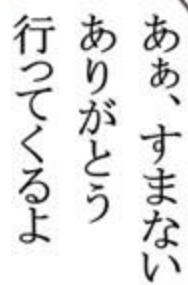 あぁ、すまない
ありがとう
行ってくるよ